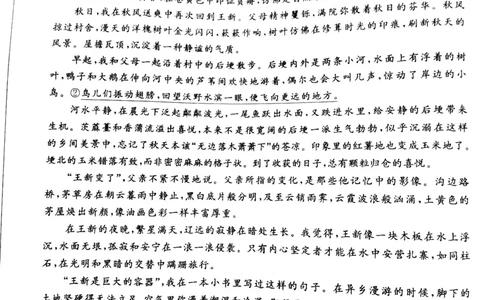 秋日,我在秋风送爽中再次回到王新。父母精神矍铄,满院弥散着秋日的芬华。秋风
掠过村舍,漫天的洋槐树叶金光闪闪,簌簌作响,树叶仿佛在修算时光的印痕,刷新秋天的
风景。屋檐瓦顶,沉淀着一种静谧的气质。
早起,我和父母一起沿着村中的后埂散步。后埂内外是两条小河,水面上有浮着的树
叶,鸭子和大鹅在伸向河中央的芦苇间欢快地游着,偶尔也会大叫几声,惊动了岸边的小
鸟。②鸟儿们振动翅膀,回望沃野水滨一眼,便飞向更远的地方。
河水平静,在晨光下泛起粼粼波光,一尾鱼跃出水面,又跌进水里,给安静的后埂带来
生机。茨菰薹和香蒲流溢出喜悦,本来不是很宽阔的后埂一派生气勃勃,似乎沉溺在这样
的乡间美景中,忘记了秋天本该“无边落木萧萧下”的苍凉。印象里的红薯地也变成玉米地了。
埂北的玉米错落有致,而非密密麻麻的格子状。到了收获的日子,总有颗粒归仓的喜悦。
“王新变了”,父亲不紧不慢地说。父亲所指的变化,是那些他记忆中的影像。沟边路
桥,茅草房在朝云暮雨中静止,黑白底片般分明,及至云销雨霁,云霞波浪般汹涌,土黄色的
茅屋焕出新颜,像油画色彩一样丰富厚重。
在王新的夜晚,繁星满天,辽远的寂静在暗处生长。我觉得,王新像一块木板在水上浮
沉,水面无垠,孤寂和安宁在一浪一浪侵袭。只有内心坚定者才能在水中安营扎寨,如同柱
石,在光明和黑暗的交替中蹒跚旅行。
“王新是巨大的容器”,我在一本小书里写过这样的句子。在异乡漫游的时候,脚下的